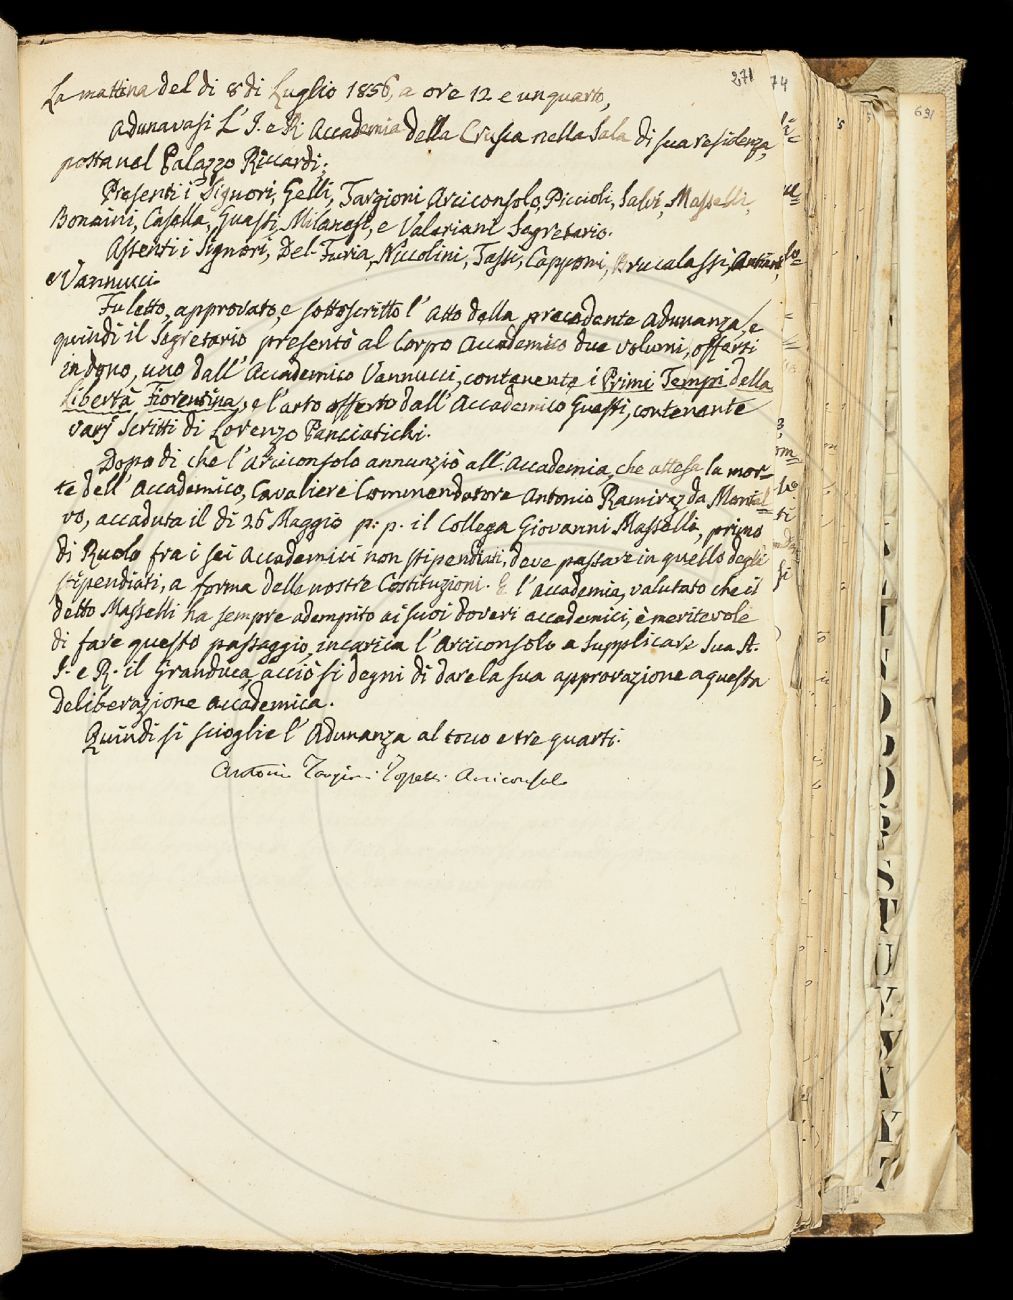 271 74
La mattina del di 8 di Luglio 1856, a ore 12 e un quarto,
Adunavasi L' I. e R. Accademia della Crusca nella Sala di sua residenza,
posta nel Palazzo Riccardi;
Presenti i Signori, Gelli, Targioni Arciconsolo, Piccioli, Salvi, Masselli,
Bonaini, Casella, Guasti, Milanesi, e Valeriani Segretario.
Assenti i Signori, Del-Furia, Niccolini, Tassi, Capponi, Brucalassi,
e Vannucci.
Fu letto, approvato, e sottoscritto l' Atto della precedente Adunanza, e
quindi il Segretario presentò al Corpo Accademico due volumi, offerti
in dono, uno dall' Accademico Vannucci, contenente i Primi Tempi della
Libertà Fiorentina, e l'altro offerto dall' Accademico Guasti, contenente
varj Scritti di Lorenzo Panciatichi.
Dopo di che l' Arciconsolo annunziò all' Accademia, che attesa la mor-
te dell' Accademico, Cavaliere Commendatore Antonio Ramirez da Montal-
vo, accaduta il di 26 Maggio p: p. il Collega Giovanni Masselli, primo
di Ruolo fra i sei Accademici non stipendiati, deve passare in quello degli
stipendiati, a forma delle nostre Costituzioni. E l' Accademia, valutato che il
detto Masselli ha sempre adempito ai suoi doveri accademici, è meritevole
di fare questo passaggio, incarica l' Arciconsolo a Supplicare Sua A.
I. e R. il Granduca, acciò si degni di dare la sua approvazione a questa
deliberazione accademica.
Quindi si scioglie l' Adunanza al tocco e tre quarti.
Antonio Targioni Tozzetti Arciconsolo
691
R
S
T
U
V
W
X
Y
Z